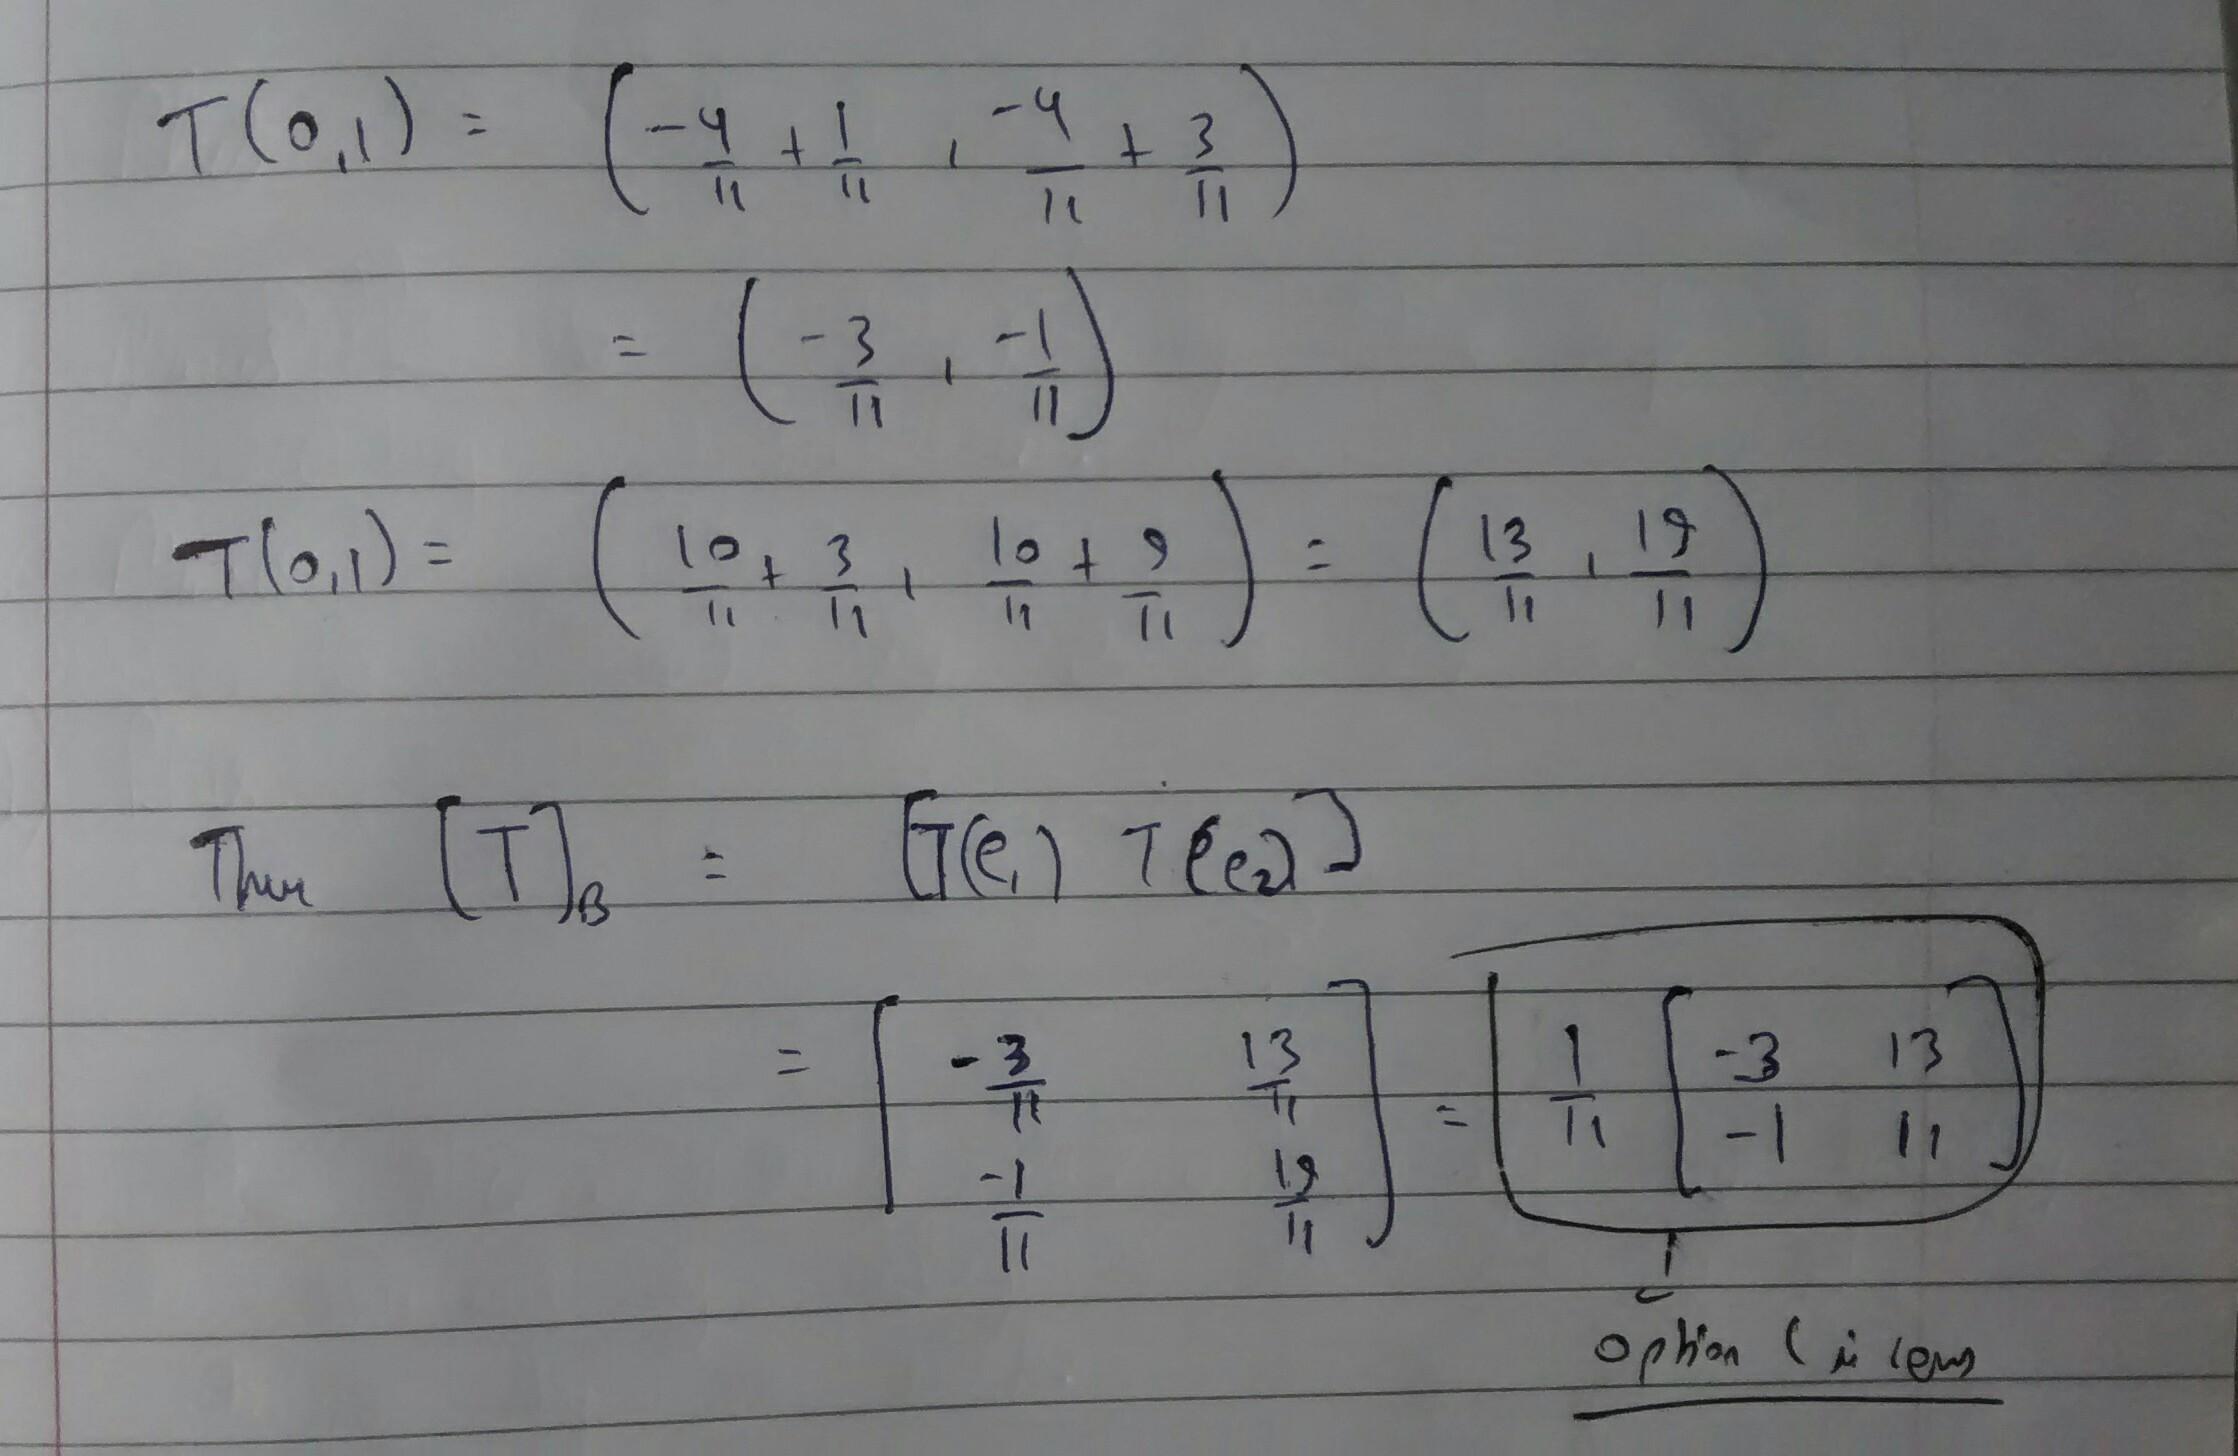 T(0,1) = (-4/11 + 1/11 , -4/11 + 3/11)
= (-3/11 , -1/11)
T(0,1) = (10/11 + 3/11 , 10/11 + 9/11) = (13/11 , 19/11)
[T]_B = [T(e₁) T(e₂)]
= [-3/11 13/11; -1/11 19/11] = 1/11 [-3 13; -1 11]
option C is